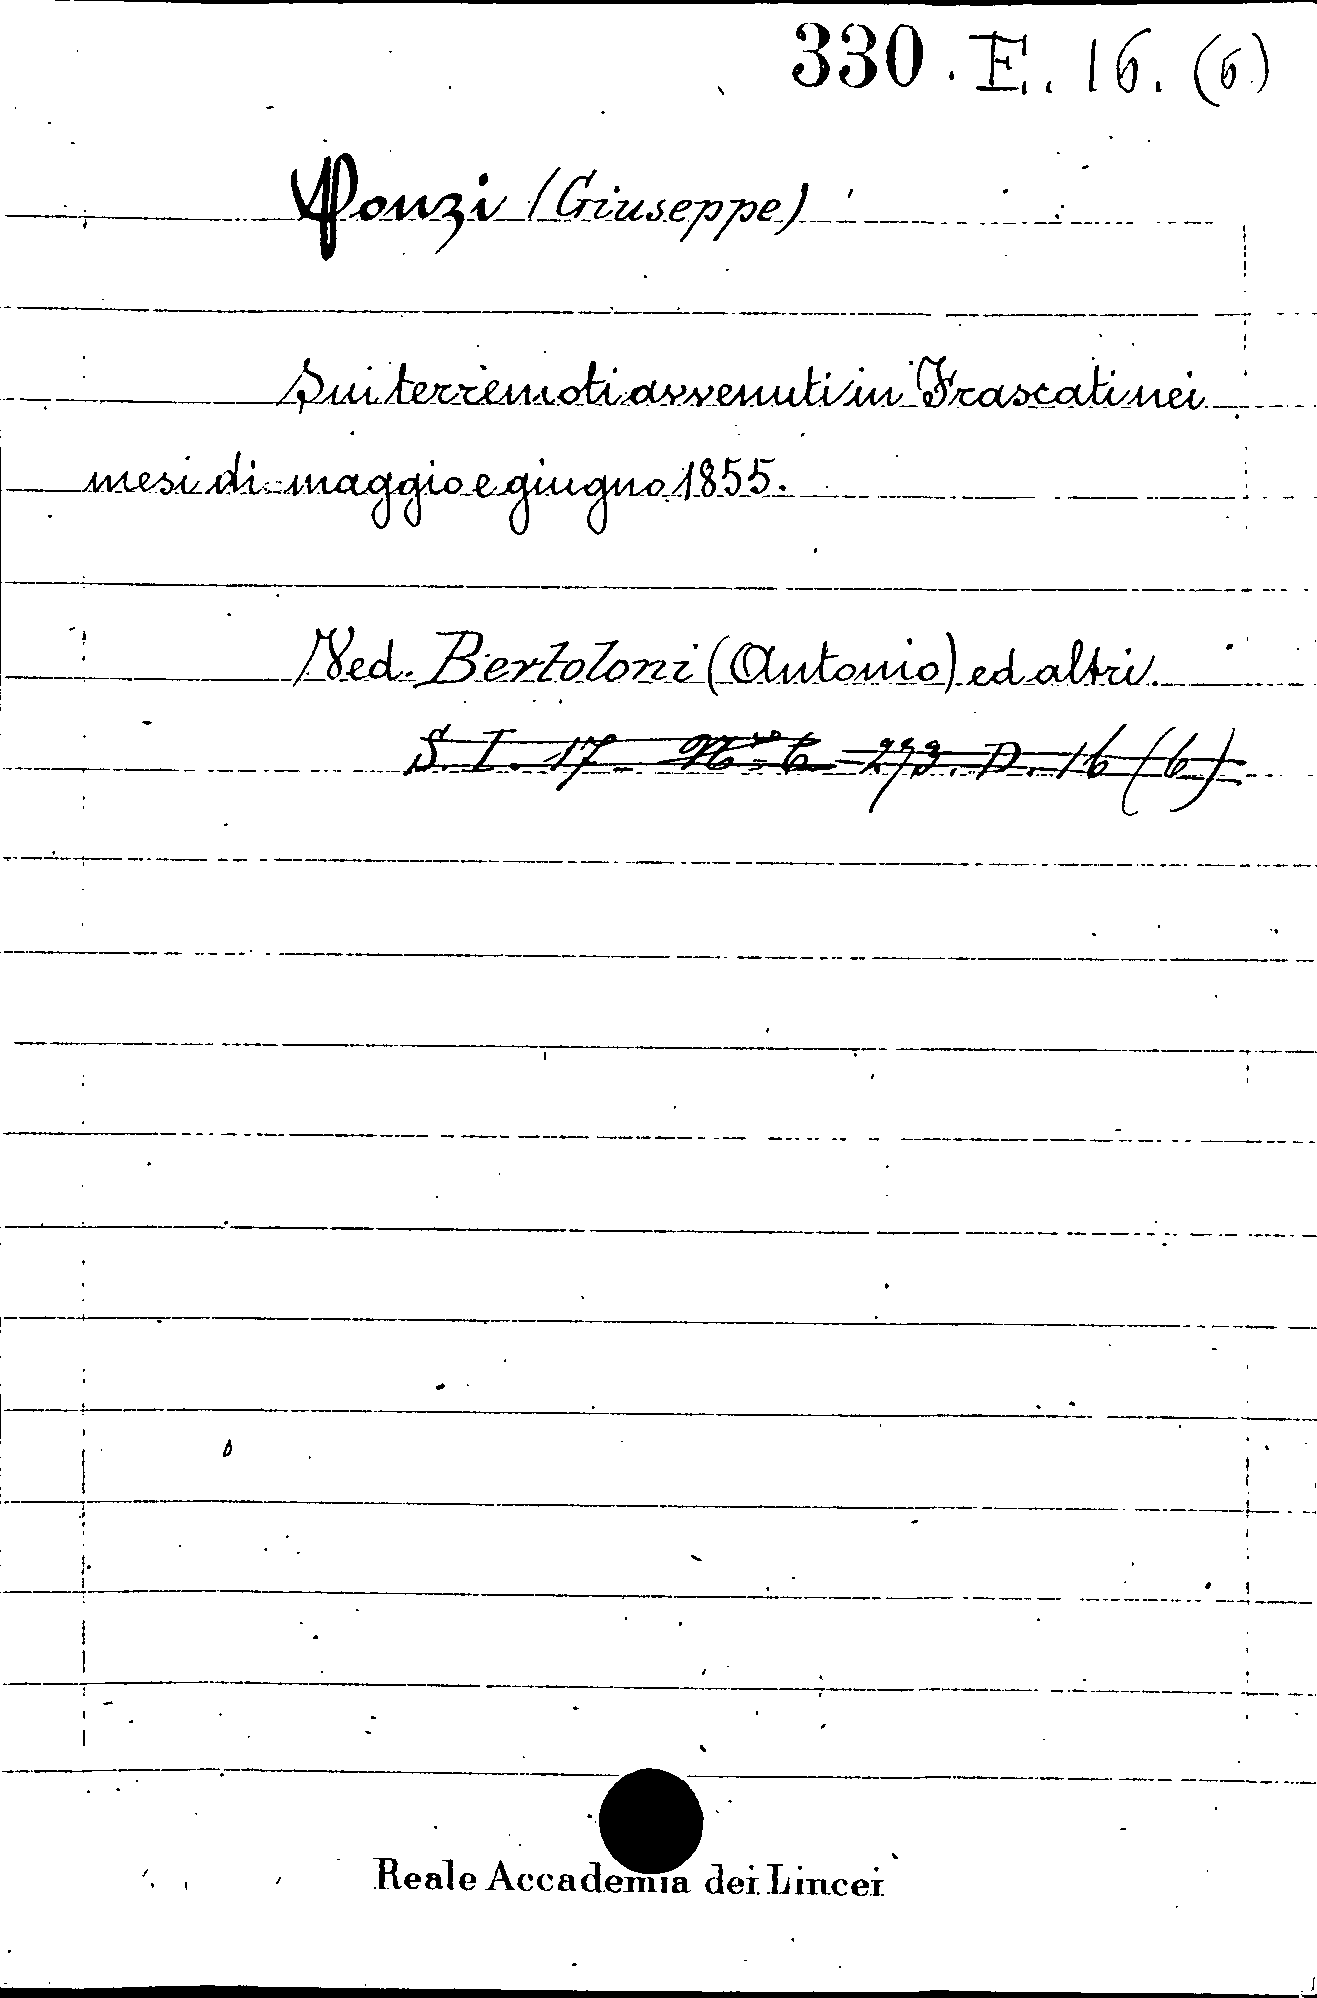 330. E. 16. (6)
Ponzi (Giuseppe)
Sui terremoti avvenuti in Frascati nei
mesi di maggio e giugno 1855.
Ved. Bertoloni (Antonio) ed altri.
S. I. 17. 273. D. 16 (6)
Reale Accademia dei Lincei